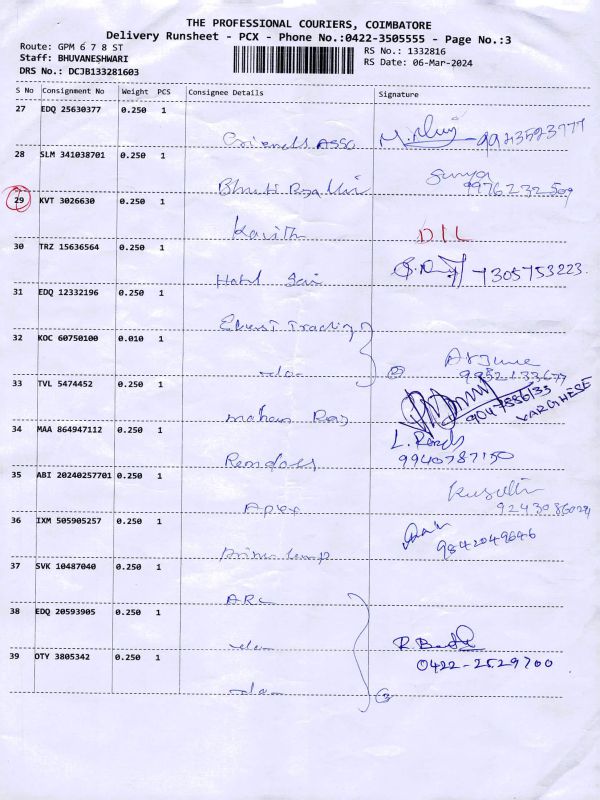 THE PROFESSIONAL COURIERS, COIMBATORE
Delivery Runsheet - PCX - Phone No.:0422-3505555 - Page No.:3
Route: GPM 6 7 8 ST
RS No.: 1332816
Staff: BHUVANESHWARI
RS Date: 06-Mar-2024
DRS No.: DCJB133281603
S No Consignment No Weight PCS Consignee Details Signature
27 EDQ 25630377 0.250 1
Friends ASSO
28 SLM 341038701 0.250 1
29 KVT 3026630 0.250 1
Kavith D/L
30 TRZ 15636564 0.250 1
Hotel Sai 7305753223
31 EDQ 12332196 0.250 1
Everest Trading
32 KOC 60750100 0.010 1
Arjune
-do- 2 9952133677
33 TVL 5474452 0.250 1
9047586133
VARGHESE
Mohan Raj
34 MAA 864947112 0.250 1
9940787150
35 ABI 20240257701 0.250 1
Apex
36 IXM 505905257 0.250 1
9842049646
37 SVK 10487040 0.250 1
ARC
38 EDQ 20593905 0.250 1
-do-
39 OTY 3805342 0.250 1
0422-2529700
-do- 3